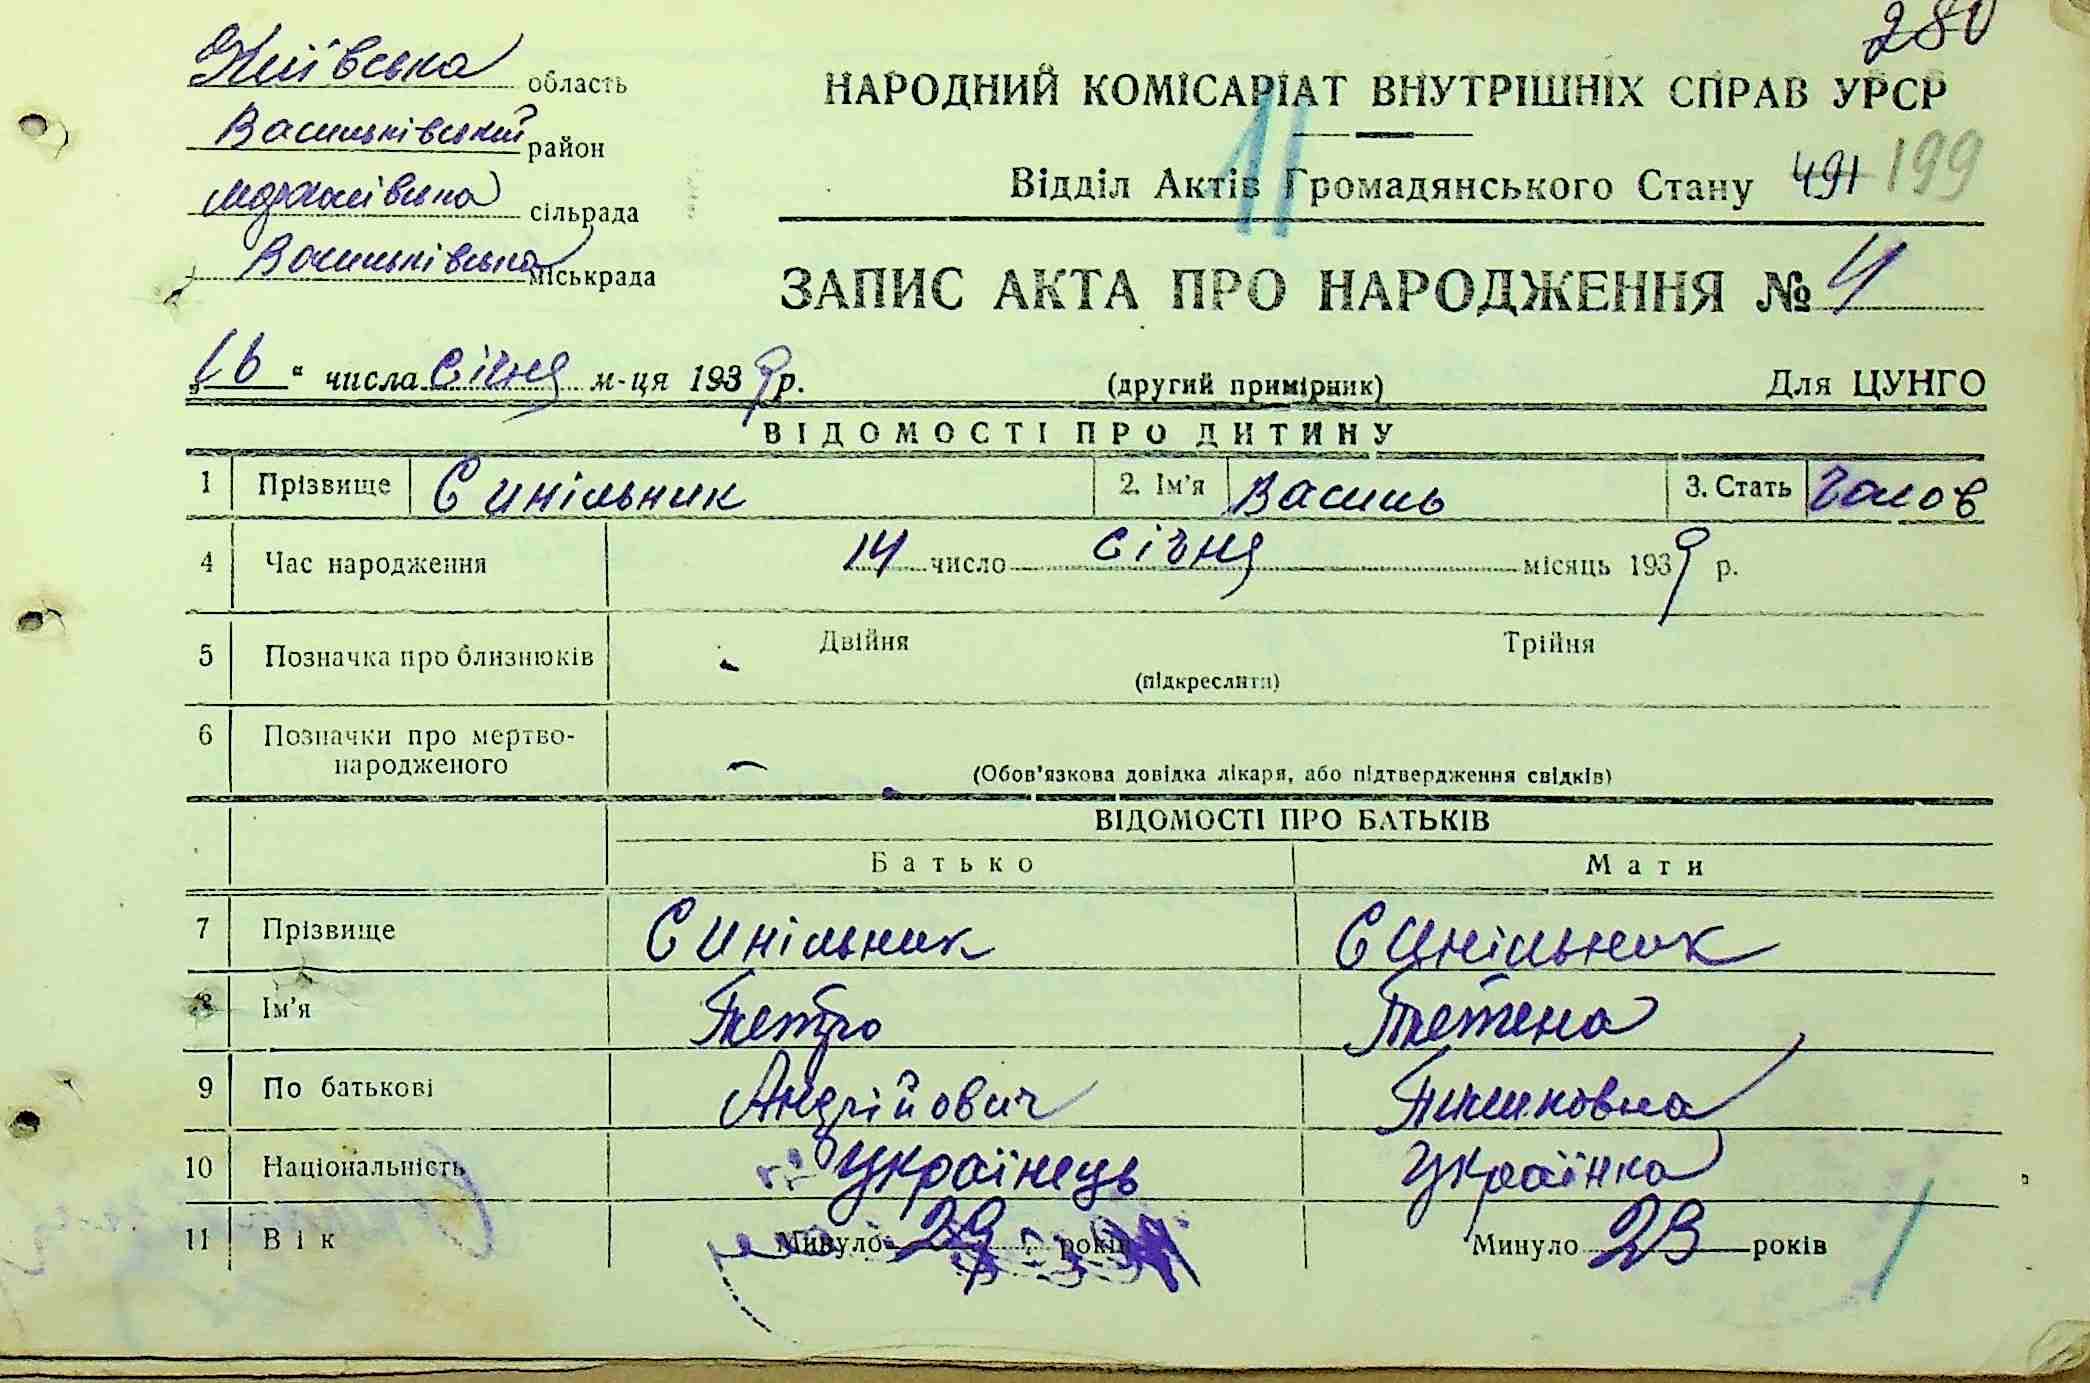 280
Київська область
Васильківський район
сільрада
Васильківська міськрада
НАРОДНИЙ КОМІСАРІАТ ВНУТРІШНІХ СПРАВ УРСР
11
Відділ Актів Громадянського Стану 491 199
ЗАПИС АКТА ПРО НАРОДЖЕННЯ № 4
„16“ числа січня м-ця 1939 р. (другий примірник) Для ЦУНГО
ВІДОМОСТІ ПРО ДИТИНУ
1 Прізвище Синільник 2. Ім'я Василь 3. Стать чолов
4 Час народження 14 число січня місяць 1939 р.
5 Позначка про близнюків - Двійня Трійня
(підкреслити)
6 Позначки про мертво-
народженого - (Обов'язкова довідка лікаря, або підтвердження свідків)
ВІДОМОСТІ ПРО БАТЬКІВ
Батько Мати
7 Прізвище Синільник Синільник
8 Ім'я Петро Тетена
9 По батькові Андрійович
10 Національність Українець Українка
11 Вік Минуло 29 років Минуло 23 років